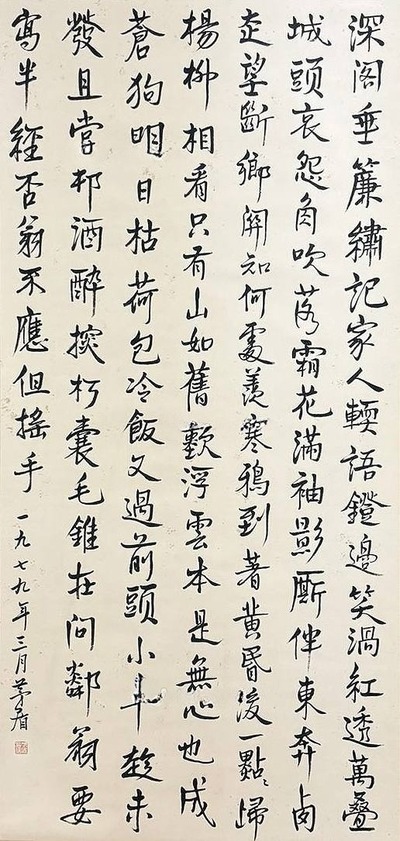 深阁垂簾繡記家人輭語鐙邊笑渦紅透萬疊
城頭哀怨角吹落霜花滿袖影厮伴東奔卤
走望斷鄉關知何處羨寒鴉到著黄昏後一點々歸
楊柳相看只有山如舊歎浮雲本是無心也成
蒼狗眀日枯荷包冷飯又過前頭小阜趁未
發且嘗邨酒醉探枵囊毛錐在問鄰翁要
寫牛經否翁不應但搖手
一九七九年三月茅盾